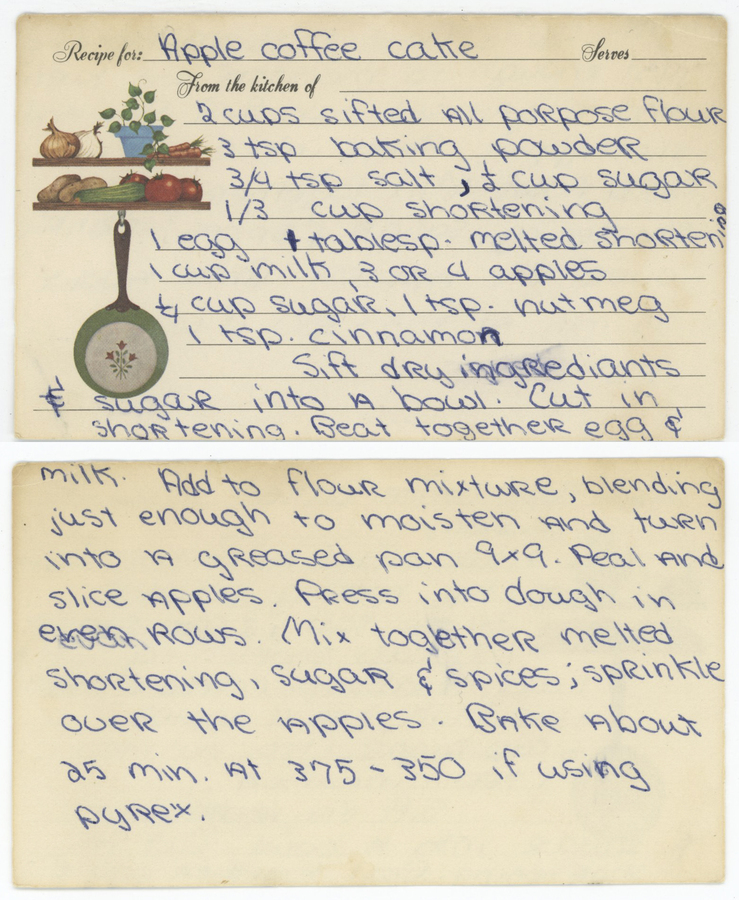 Recipe for: Apple coffee cake Serves
From the kitchen of
2 cups sifted All porpose flour
3 tsp baking powder
3/4 tsp salt ; ½ cup sugar
1/3 cup shortening
1 egg 1 tablesp. melted shortening
1 cup milk, 3 or 4 apples
¼ cup sugar, 1 tsp. nutmeg
1 tsp. cinnamon
Sift dry ingrediants
& sugar into A bowl. Cut in
shortening. Beat together egg &
milk. Add to flour mixture, blending
just enough to moisten And turn
into A greased pan 9x9. Peal And
slice Apples. Press into dough in
even Rows. Mix together melted
shortening, sugar & spices; sprinkle
over the Apples. Bake About
25 min. At 375 - 350 if using
pyrex.